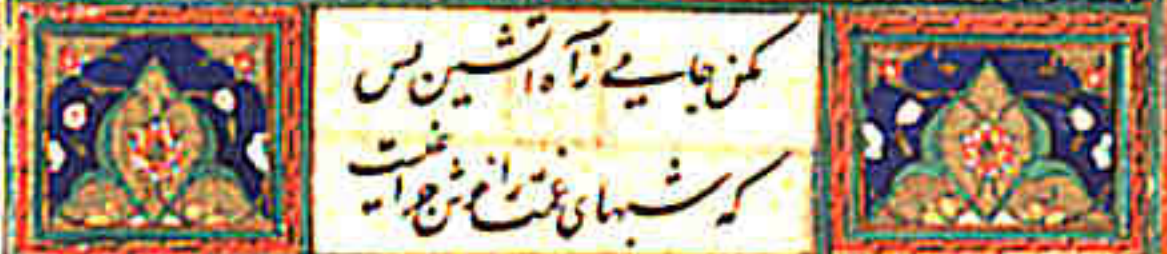 مکن جامی ز آه آتشین بس
که شبهای غمت را خوش چراغیست